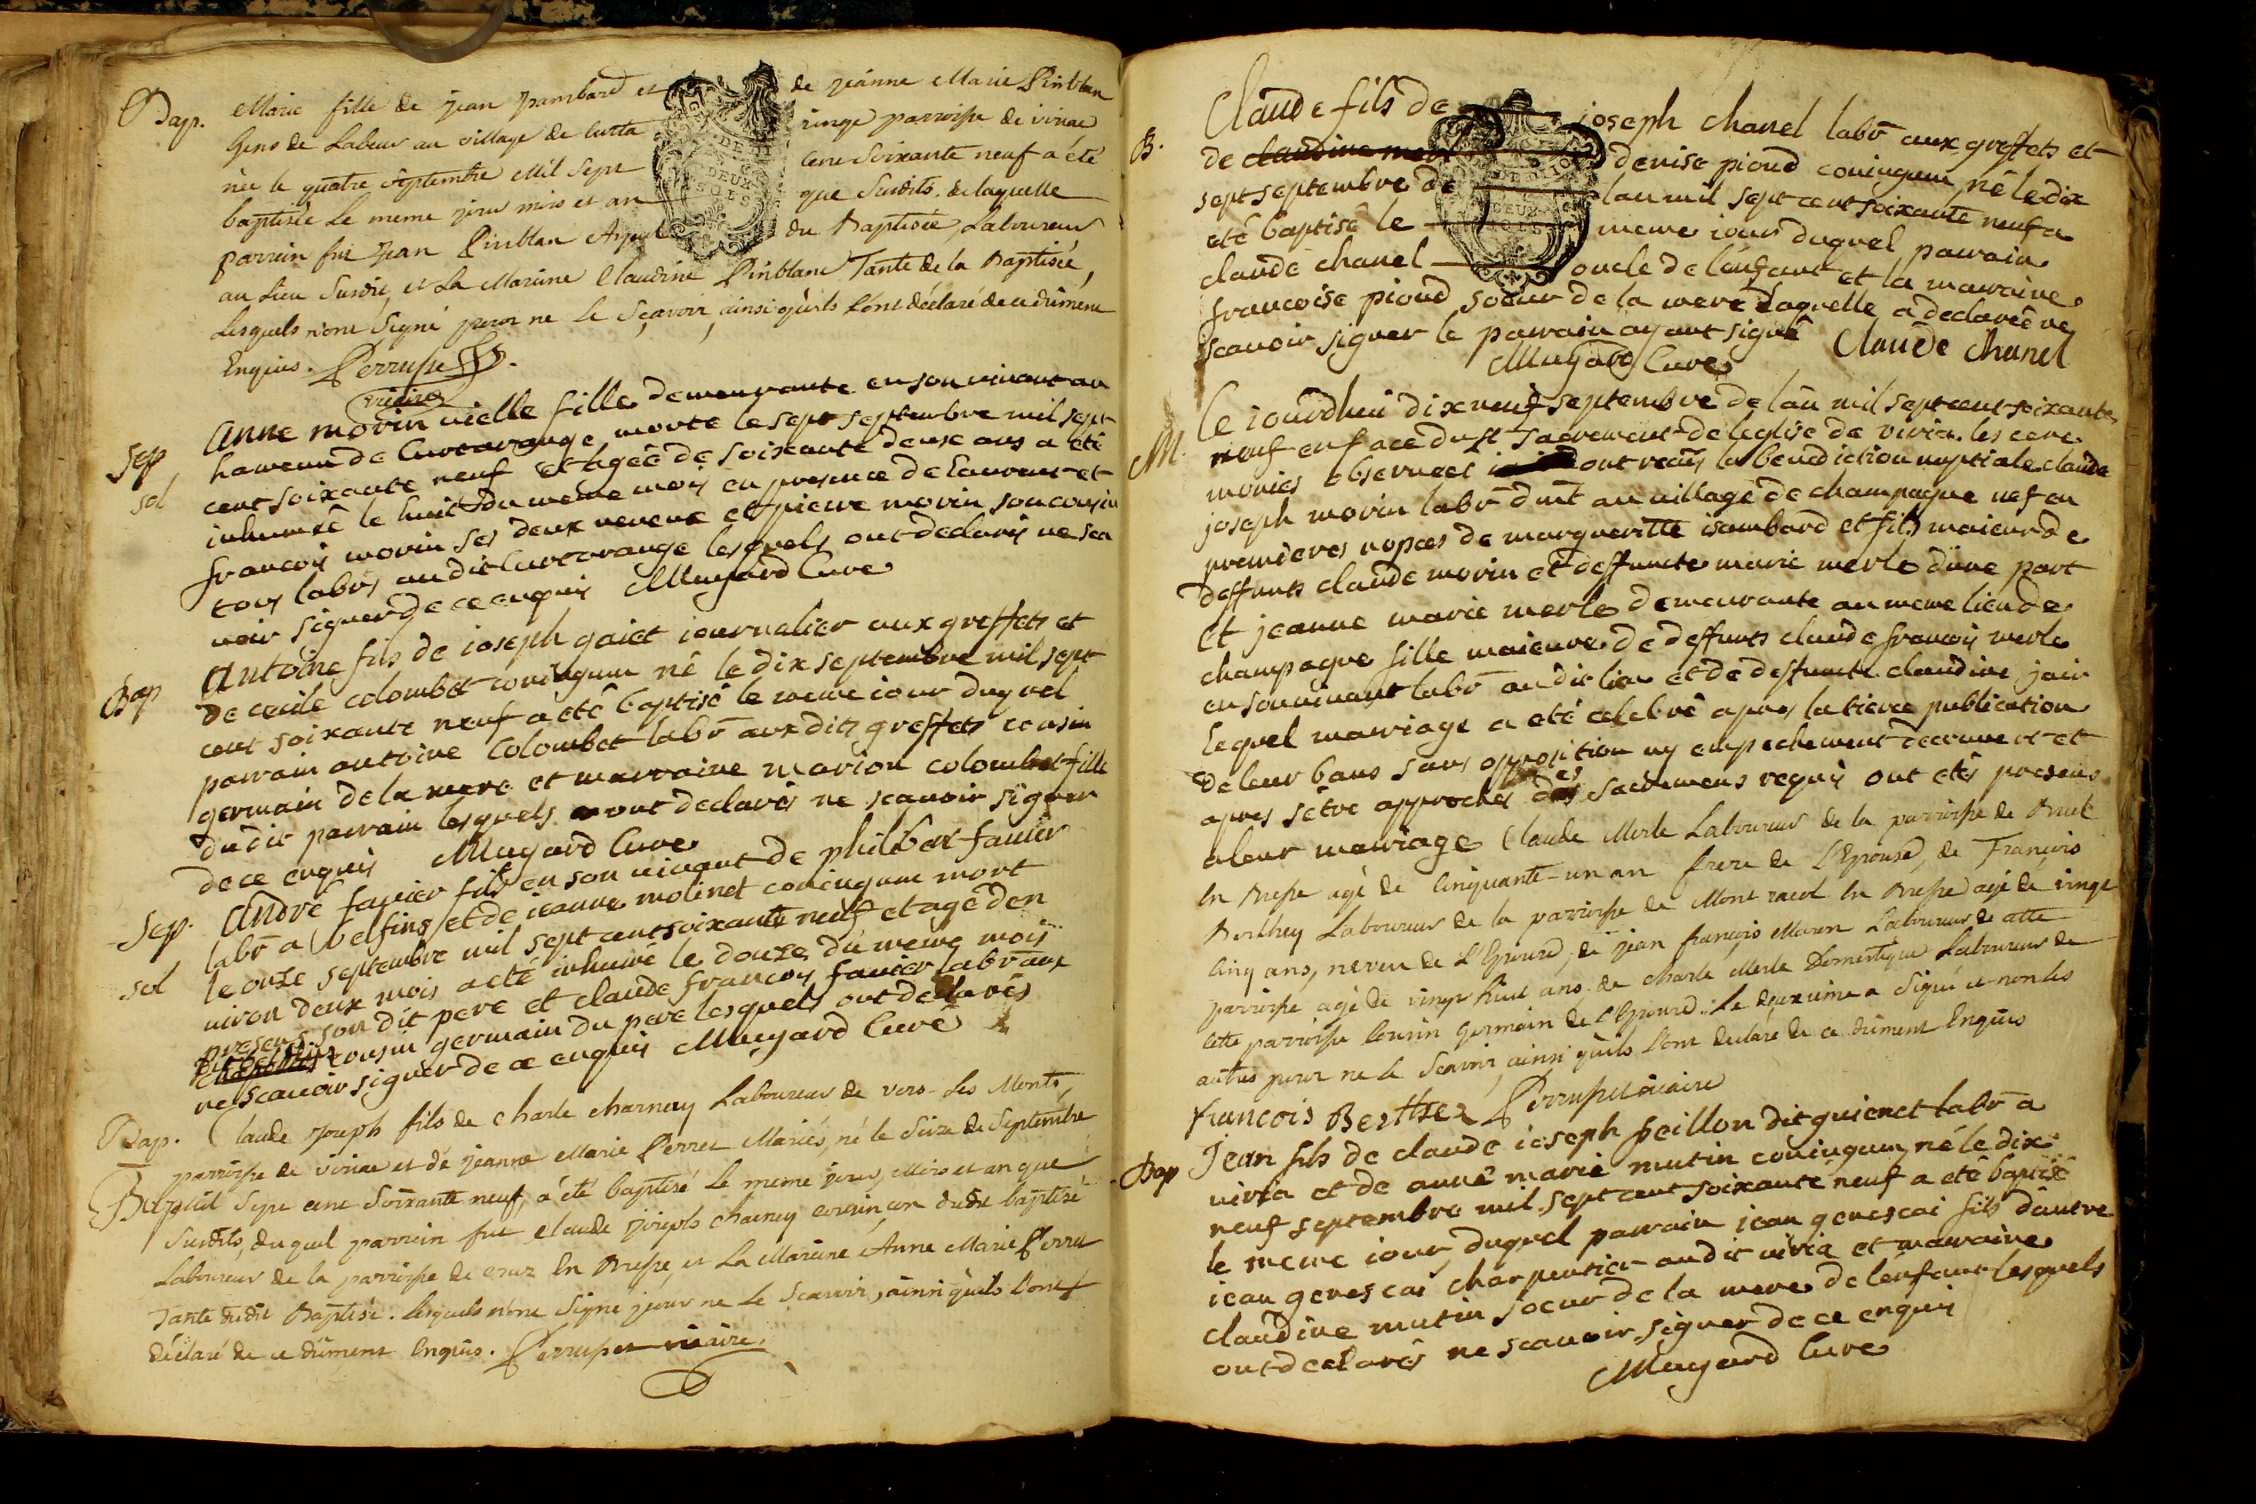 Bap. Marie fille de jean jsambard et de jeanne Marie Pinblan
Gens de Labeur au village de curta ringe parroisse de viriae
née le quatre septembre Mil sept cent Soixante neuf a été
baptisée Le meme jour mois et an que Susdits de laquelle
parrein fut jean Pinblan Ayeul du Baptisée, Laboureur
au Lieu Susdit, et La Mareine Claudine Pinblanc Tante de la Baptisée,
Lesquels n'ont Signé pour ne le Sçavoir, ainsi qu'ils l'ont déclaré de ce dûment
Enquis. Perruset
vicaire
Sep anne morin vielle fille demeurante en son vivant au
hameau de Curtarange morte le sept septembre mil sept
sol cent soixante neuf et agéé de soixante deux ans a été
inhumeé le huit du meme mois en presence de laurent et
francois morin ses deux neveux et pierre morin son cousin
tous labrs audit Curtarange lesquels ont declarés ne sca
voir signer de ce enquis Mugard Cure
Bap antoine fils de ioseph gaiet iournalier aux greffets et
de cecile colombet coniugum né le dix septembre mil sept
cent soixante neuf a eté baptisé le meme iour duquel
parrain antoine Colombet labr aux dits greffets cousin
germain de la mere et marraine marion colombet fille
dudit parrain lesquels ont declarés ne scauoir signer
de ce enquis Mugard Cure
Sep. andré favier fils en son vivant de philibert favier
labr a Velfins et de ieanne molinet coniugum mort
sol le onze septembre mil sept cent soixante neuf et agé den
uiron deux mois a eté inhumé le douze du meme mois
presens son dit pere et claude francois favier labr aux
cousin germain du pere lesquels ont declarés
ne scauoir signer de ce enquis Mugard Curé
Bap. Claude Joseph fils de Charle Charnay Laboureur de vers Les Monts,
parroisse de viriae et de jeanne Marie Perret Mariés, né le Seize de Septembre
Mil Sept cent Soixante neuf, a été baptisé Le meme jour, Mois et an que
Susdits, du quel parrein fut Claude joseph Charney cousin dudit baptisé
Laboureur de la parroisse de cruz En Bresse, et La Mareine Anne Marie Perret
Tante dudit Baptisé. Lesquels n'ont Signé pour ne Le Scavoir, ainsi qu'ils L'ont
déclaré de ce dûment Enquis. Perruset vicaire
B. Claude fils de joseph chanel labr aux greffets et
de denise pioud coniugum né le dix
sept septembre de lan mil sept cent soixante neuf a
eté baptisé le meme iour duquel parrain
claude chanel oncle de lenfant et la marraine
francoise pioud soeur de la mere laquelle a declareé ne
scauoir signer le parrain ayant signé Claude Chanel
Mugard Cure
M. Ceiourdhui dix neuf septembre de lan mil sept cent soixante
neuf en face du st sacrement de leglise de viria. les cere
monies observeés ont recus la benediction nuptiale claude
joseph morin labr dmt au village de champagne uef en
premieres nopces de margueritte isambard et fils maieur de
deffunts claude morin et deffuncte marie merle dune part
Et jeanne marie merle demeurante au meme lieu de
champagne fille maieure de deffunts claude francois merle
en son vivant labr audit lieu et de deffuncte claudine jair
Lequel mariage a eté celebré apres la tierce publication
de leur bans sans opposition ny empechement decouvert et
apres setre approchés des sacremens requis ont etés presens
a leur mariage Claude Merle Laboureur de la parroisse de
En Bresse agé de Cinquante-un an frere de L'Epouse, de François
Berthey Laboureur de la parroisse de Mont racol En Bresse agé de vingt
Cinq ans, neveu de L'Epouse, de jean françois Morin Laboureur de cette
parroisse agé de vingt huit ans. de Charle Merle Domestique Laboureur de
cette parroisse Cousin Germain de L'Epouse. Le deuxieme a Signé et non les
autres pour ne le Scavoir, ainsi qu'ils l'ont declaré de ce dûment Enquis
francois Berthez Perruset vicaire
Bap Jean fils de claude ioseph peillon dit guienet labr a
viria et de anne marie mutin coniugum, né le dix
neuf septembre mil sept cent soixante neuf a eté baptisé
le meme iour, duquel parrain iean genescai fils dautre
iean genescai charpentier audit viria et marraine
claudine mutin soeur de la mere de lenfant lesquels
ont declarés ne scauoir signer de ce enquis
Mugard Cure